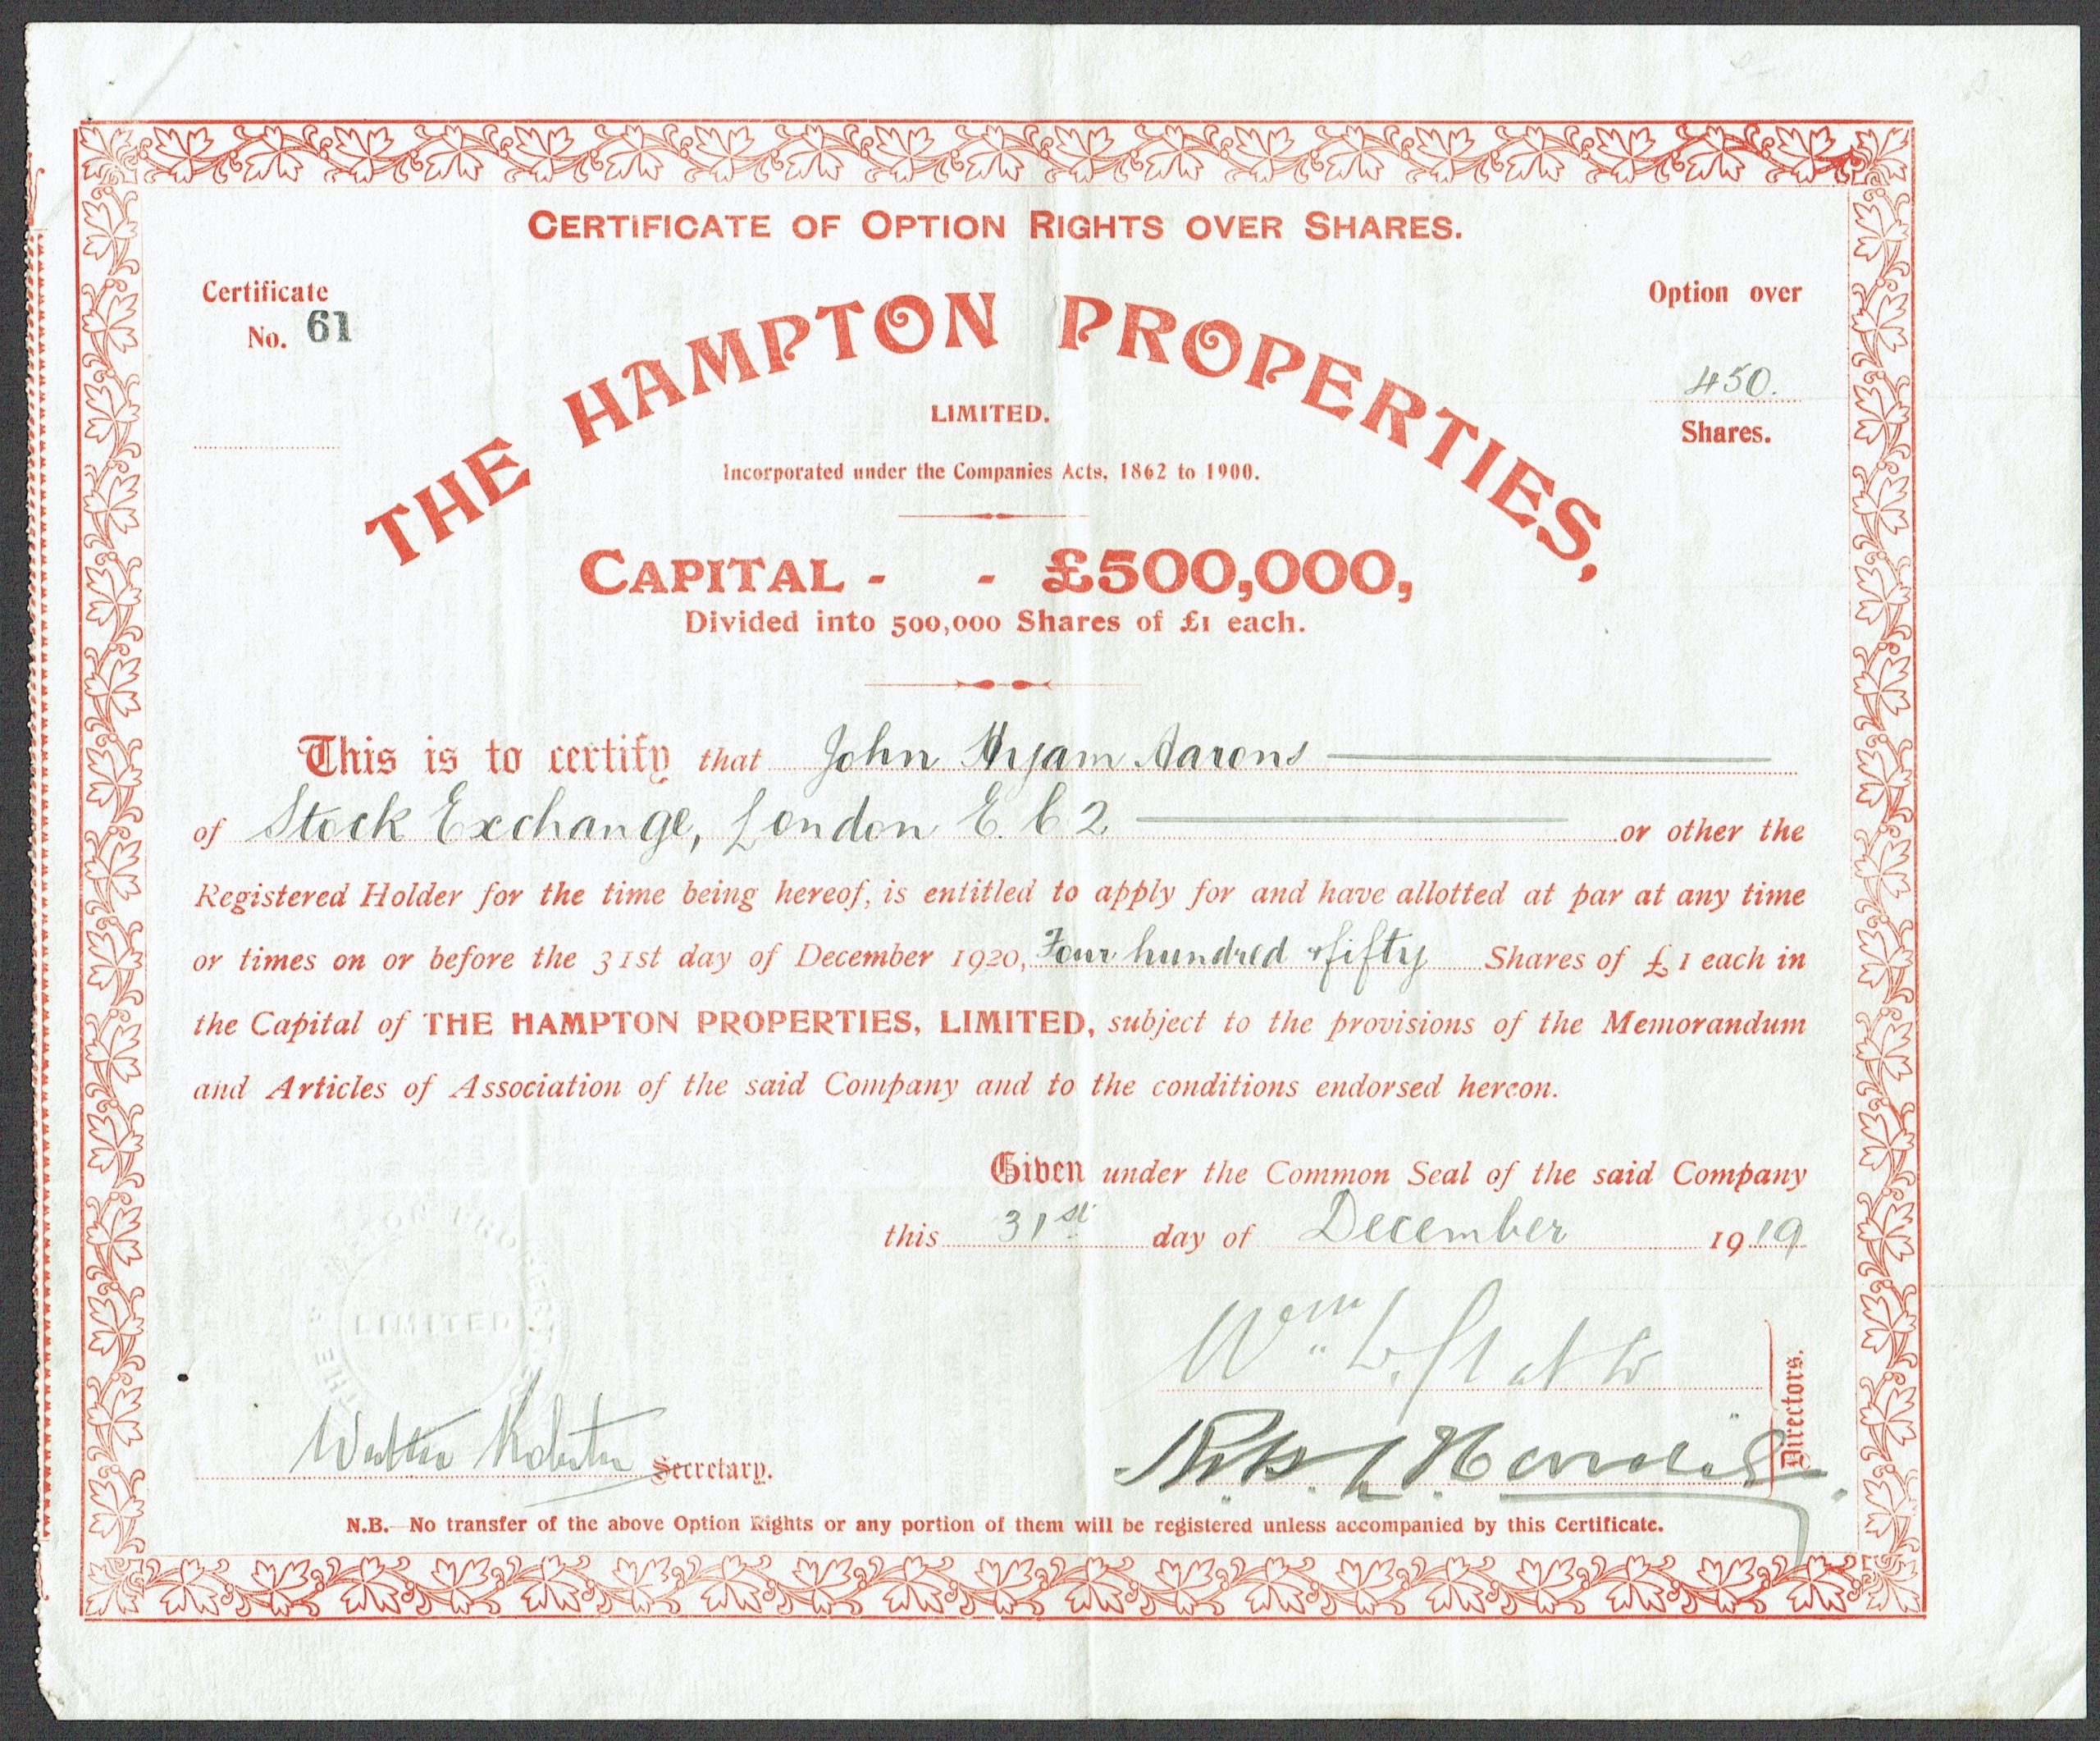 CERTIFICATE OF OPTION RIGHTS OVER SHARES.
Certificate
No. 61
Option over
450.
Shares.
THE HAMPTON PROPERTIES,
LIMITED.
Incorporated under the Companies Acts, 1862 to 1900.
CAPITAL - - £500,000,
Divided into 500,000 Shares of £1 each.
This is to certify that John Hyam Aarons
of Stock Exchange, London E.C 2 or other the
Registered Holder for the time being hereof, is entitled to apply for and have allotted at par at any time
or times on or before the 31st day of December 1920, Four hundred & fifty Shares of £1 each in
the Capital of THE HAMPTON PROPERTIES, LIMITED, subject to the provisions of the Memorandum
and Articles of Association of the said Company and to the conditions endorsed hereon.
Given under the Common Seal of the said Company
this 31st day of December 1919
THE HAMPTON PROPERTIES
LIMITED
Directors.
Walter Secretary.
N.B.—No transfer of the above Option Rights or any portion of them will be registered unless accompanied by this Certificate.